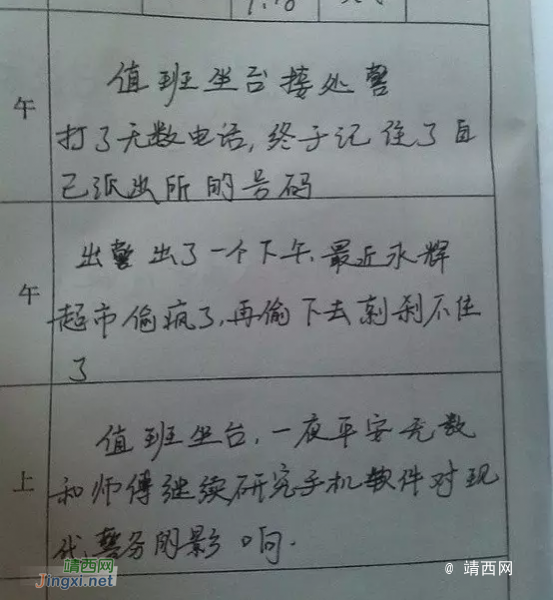 值班坐台接处警
午
打了无数电话,终于记住了自
己派出所的号码
出警出了一个下午,最近永辉
午
超市偷疯了,再偷下去刹不住
了
值班坐台,一夜平安无数
上
和师傅继续研究手机软件对现
代警务的影响.
靖西网
Jingxi.net
@ 靖西网